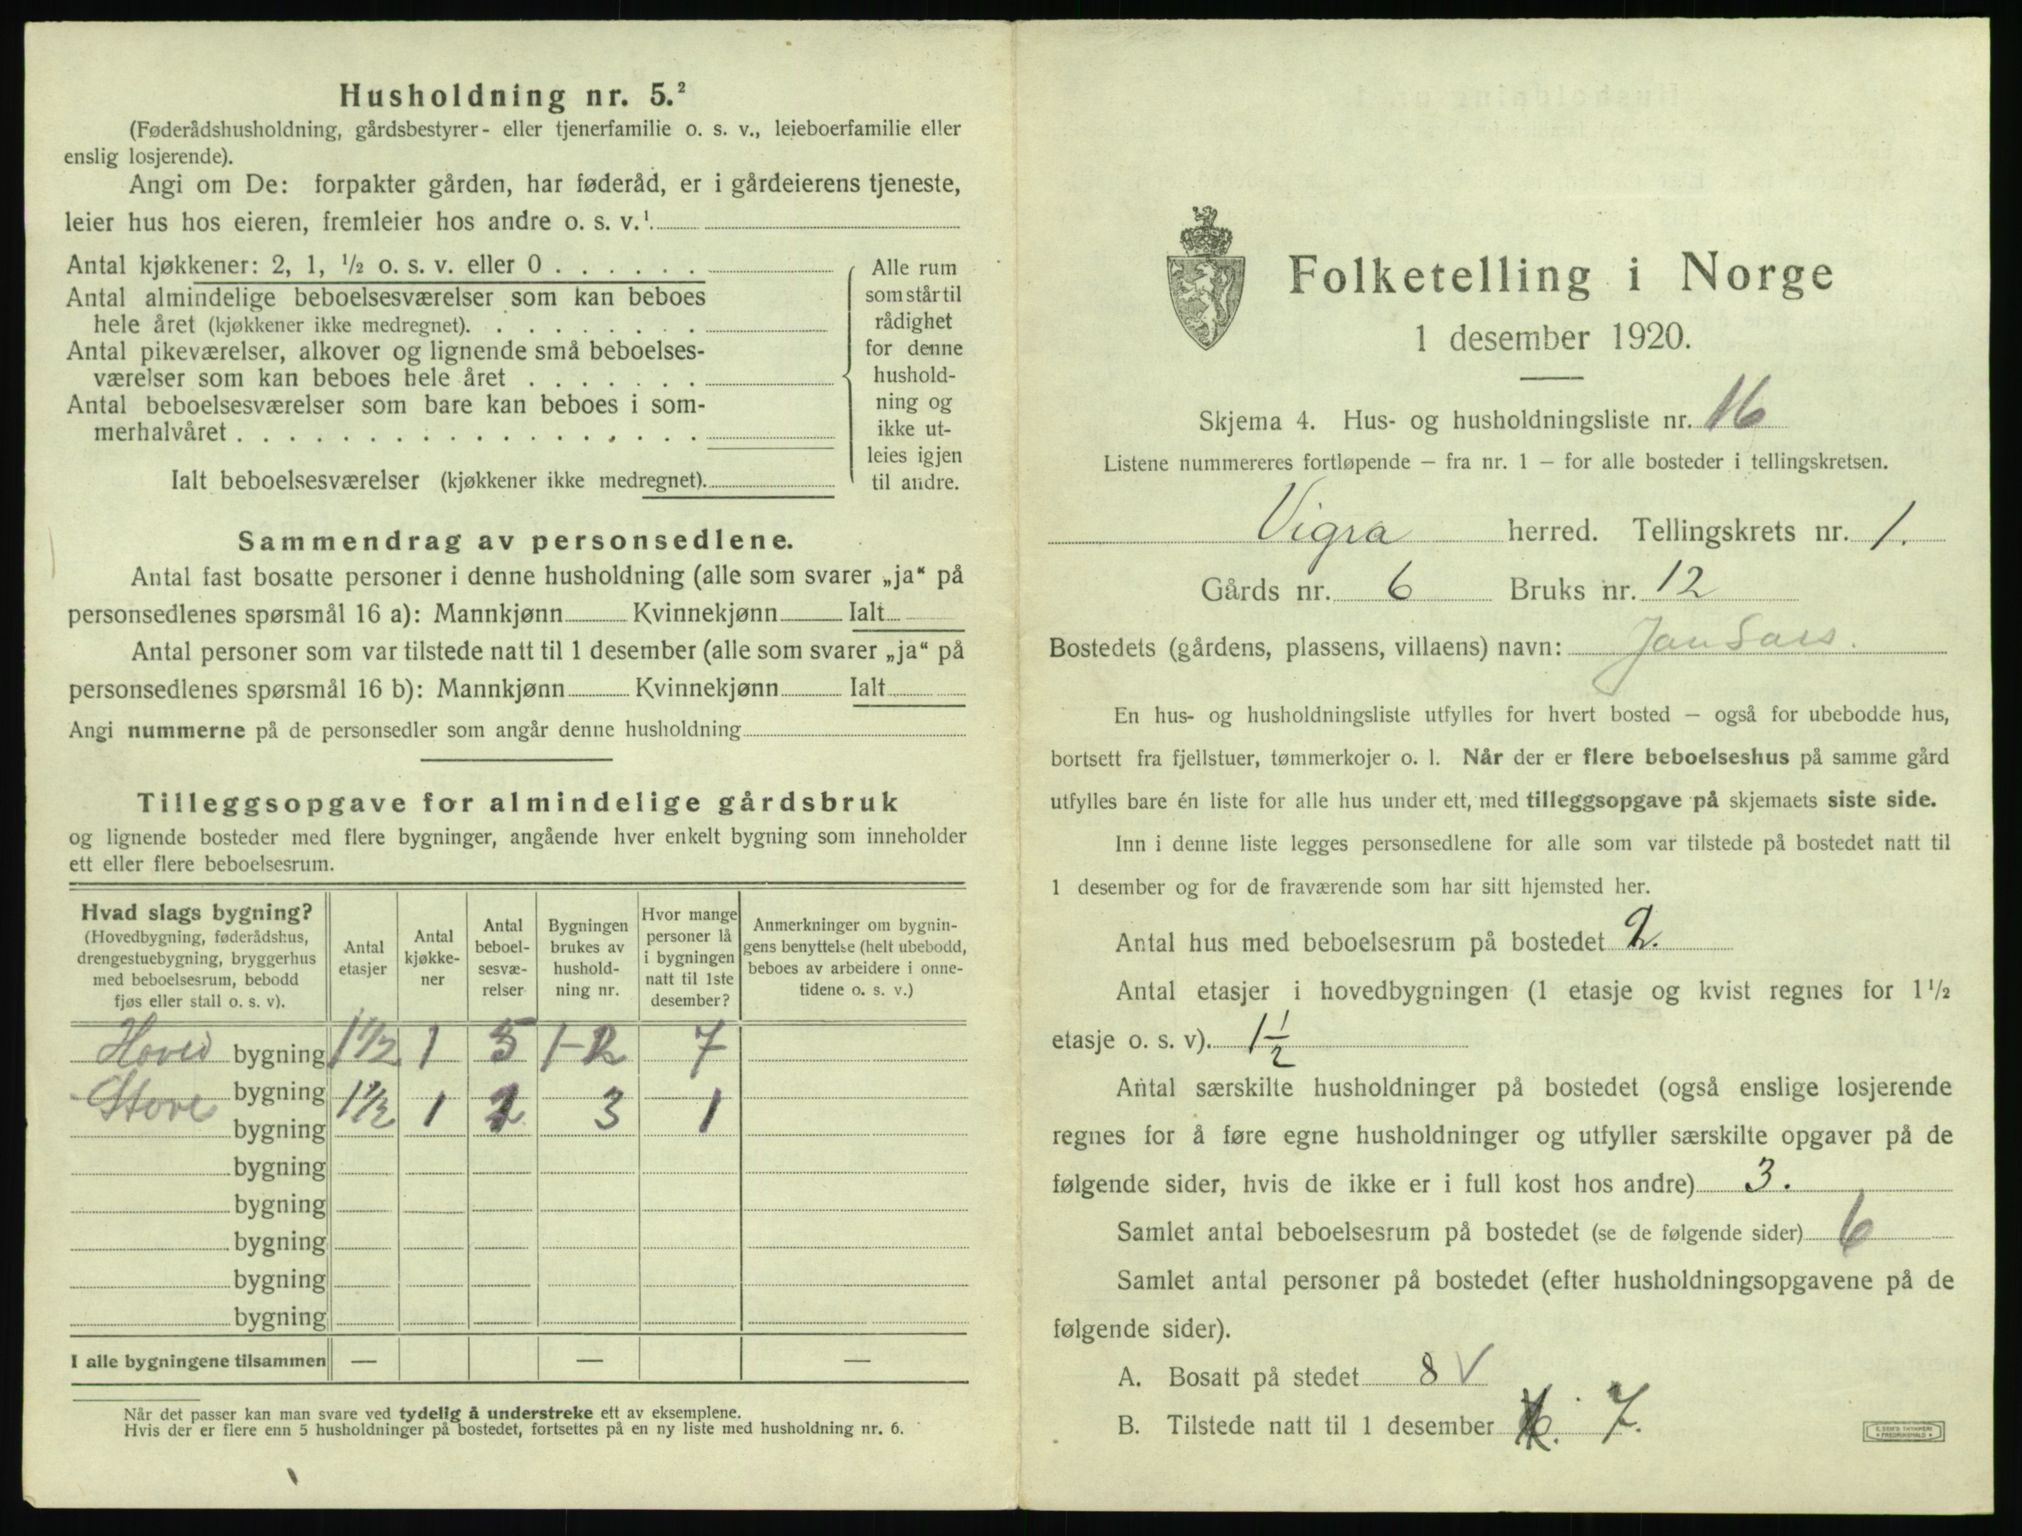 Husholdning nr. 5.²
(Føderådshusholdning, gårdsbestyrer- eller tjenerfamilie o. s. v., leieboerfamilie eller
enslig losjerende).
Angi om De: forpakter gården, har føderåd, er i gårdeierens tjeneste,
leier hus hos eieren, fremleier hos andre o. s. v.¹
Antal kjøkkener: 2, 1, ½ o. s. v. eller 0
Antal almindelige beboelsesværelser som kan beboes
hele året (kjøkkener ikke medregnet).
Antal pikeværelser, alkover og lignende små beboelses-
værelser som kan beboes hele året
Antal beboelsesværelser som bare kan beboes i som-
merhalvåret
Ialt beboelsesværelser (kjøkkener ikke medregnet).
Alle rum
som står til
rådighet
for denne
hushold-
ning og
ikke ut-
leies igjen
til andre.
Sammendrag av personsedlene.
Antal fast bosatte personer i denne husholdning (alle som svarer „ja“ på
personsedlenes spørsmål 16 a): Mannkjønn Kvinnekjønn Ialt
Antal personer som var tilstede natt til 1 desember (alle som svarer „ja“ på
personsedlenes spørsmål 16 b): Mannkjønn Kvinnekjønn Ialt
Angi nummerne på de personsedler som angår denne husholdning
Tilleggsopgave for almindelige gårdsbruk
og lignende bosteder med flere bygninger, angående hver enkelt bygning som inneholder
ett eller flere beboelsesrum.
Hvad slags bygning?
(Hovedbygning, føderådshus,
drengestuebygning, bryggerhus
med beboelsesrum, bebodd
fjøs eller stall o. s. v).
Antal
etasjer
Antal
kjøkke-
ner
Antal
beboel-
sesvæ-
relser
Bygningen
brukes av
hushold-
ning nr.
Hvor mange
personer lå
i bygningen
natt til 1ste
desember?
Anmerkninger om bygnin-
gens benyttelse (helt ubebodd,
beboes av arbeidere i onne-
tidene o. s. v.)
Hoved bygning 1½ 1 5 1-2 7
bygning
Stove bygning 1½ 1 3 1
bygning
bygning
bygning
bygning
bygning
I alle bygningene tilsammen — — —
Når det passer kan man svare ved tydelig å understreke ett av eksemplene.
Hvis der er flere enn 5 husholdninger på bostedet, fortsettes på en ny liste med husholdning nr. 6.
Folketelling i Norge
1 desember 1920.
Skjema 4. Hus- og husholdningsliste nr. 16
Listene nummereres fortløpende – fra nr. 1 – for alle bosteder i tellingskretsen.
Vigra herred. Tellingskrets nr. 1.
Gårds nr. 6 Bruks nr. 12
Bostedets (gårdens, plassens, villaens) navn:
En hus- og husholdningsliste utfylles for hvert bosted – også for ubebodde hus,
bortsett fra fjellstuer, tømmerkojer o. l. Når der er flere beboelseshus på samme gård
utfylles bare én liste for alle hus under ett, med tilleggsopgave på skjemaets siste side.
Inn i denne liste legges personsedlene for alle som var tilstede på bostedet natt til
1 desember og for de fraværende som har sitt hjemsted her.
Antal hus med beboelsesrum på bostedet 2.
Antal etasjer i hovedbygningen (1 etasje og kvist regnes for 1½
etasje o. s. v). 1½
Antal særskilte husholdninger på bostedet (også enslige losjerende
regnes for å føre egne husholdninger og utfyller særskilte opgaver på de
følgende sider, hvis de ikke er i full kost hos andre) 3.
Samlet antal beboelsesrum på bostedet (se de følgende sider) 6
Samlet antal personer på bostedet (efter husholdningsopgavene på de
følgende sider).
A. Bosatt på stedet 8 V
B. Tilstede natt til 1 desember 7.